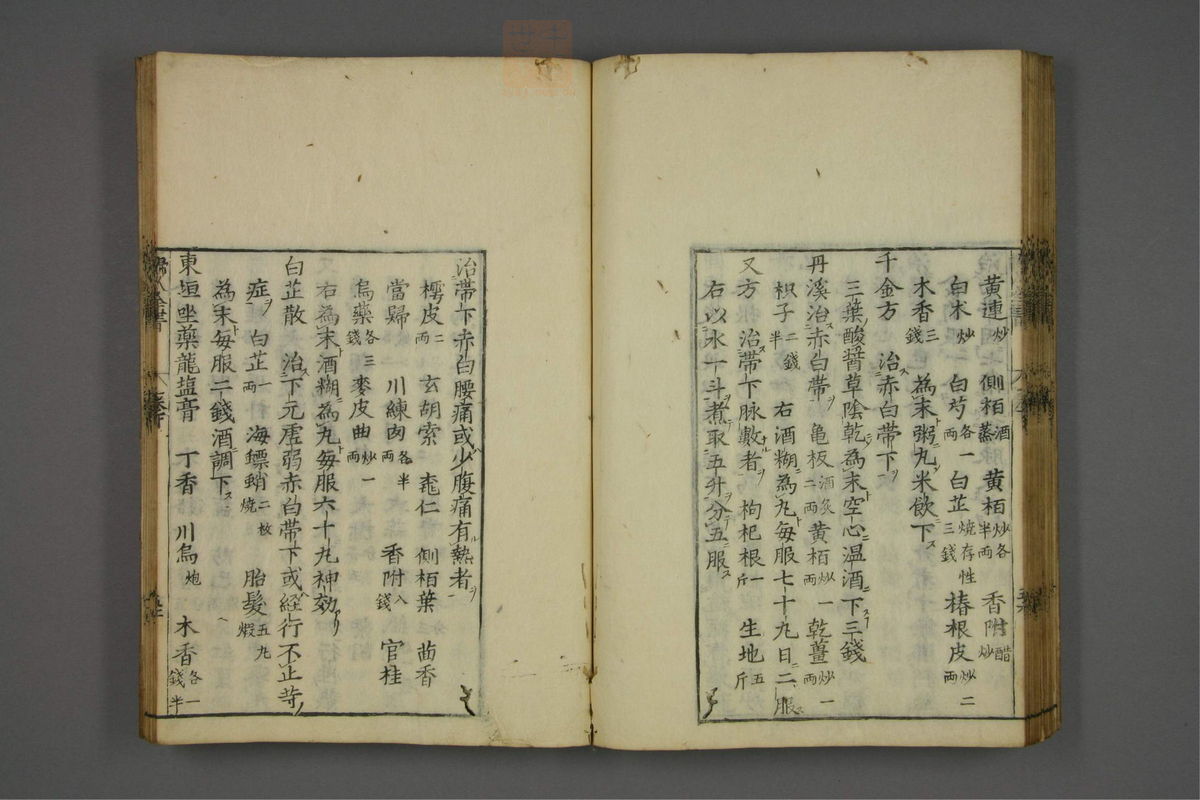 黄連炒 側栢酒蒸 黄栢炒各半両 香附醋炒
白朮炒 白芍各一両 白芷焼存性三錢 椿根皮炒二両
木香三錢 為末粥丸米飲下ス
千金方 治ス赤白帶下ヲ
三葉酸醤草陰乾為末空心温酒下三錢
丹溪治ス赤白帶ヲ 亀板酒炙二両 黄栢炒一両 乾薑炒一両
枳子二錢半 右酒糊為丸毎服七十丸日二服ス
又方 治ス帶下脉數者ヲ 枸杞根一斤 生地五斤
右以水一斗煮取五升分五服ス
治帶下赤白腰痛或少腹痛有熱者ヲ
樗皮二両 玄胡索 桃仁 側栢葉 茴香
當歸 川練肉各半両 香附八錢 官桂
烏藥各三錢 麥皮曲炒一両
右為末酒糊為丸毎服六十丸神効
白芷散 治ス下元虚弱赤白帶下或経行不止等ノ
症ヲ 白芷一両 海螵蛸二枚焼 胎髪五丸煆
為末毎服二錢酒調下ス
東垣坐藥龍塩膏 丁香 川烏炮 木香各一錢半